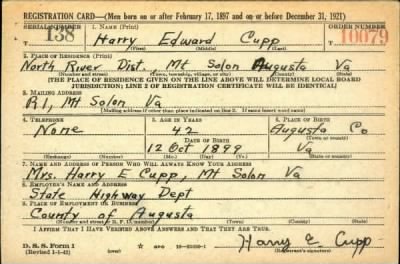 REGISTRATION CARD—(Men born on or after February 17, 1897 and on or before December 31, 1921)
SERIAL NUMBER 1. NAME (Print) ORDER NUMBER
138 Harry Edward Cupp 10079
(First) (Middle) (Last)
2. PLACE OF RESIDENCE (Print)
North River Dist. Mt Solon Augusta Va
(Number and street) (Town, township, village, or city) (County) (State)
[THE PLACE OF RESIDENCE GIVEN ON THE LINE ABOVE WILL DETERMINE LOCAL BOARD
JURISDICTION; LINE 2 OF REGISTRATION CERTIFICATE WILL BE IDENTICAL]
3. MAILING ADDRESS
R.1, Mt Solon Va
[Mailing address if other than place indicated on line 2. If same insert word same]
4. TELEPHONE 5. AGE IN YEARS 6. PLACE OF BIRTH
None 42 Augusta Co
DATE OF BIRTH (Town or county)
12 Oct 1899 Va
(Exchange) (Number) (Mo.) (Day) (Yr.) (State or country)
7. NAME AND ADDRESS OF PERSON WHO WILL ALWAYS KNOW YOUR ADDRESS
Mrs. Harry E Cupp, Mt Solon Va
8. EMPLOYER'S NAME AND ADDRESS
State Highway Dept
9. PLACE OF EMPLOYMENT OR BUSINESS
County of Augusta
(Number and street or R. F. D. number) (Town) (County) (State)
I AFFIRM THAT I HAVE VERIFIED ABOVE ANSWERS AND THAT THEY ARE TRUE.
D. S. S. Form 1
(Revised 1-1-42) GPO Harry E Cupp
(Registrant's signature)